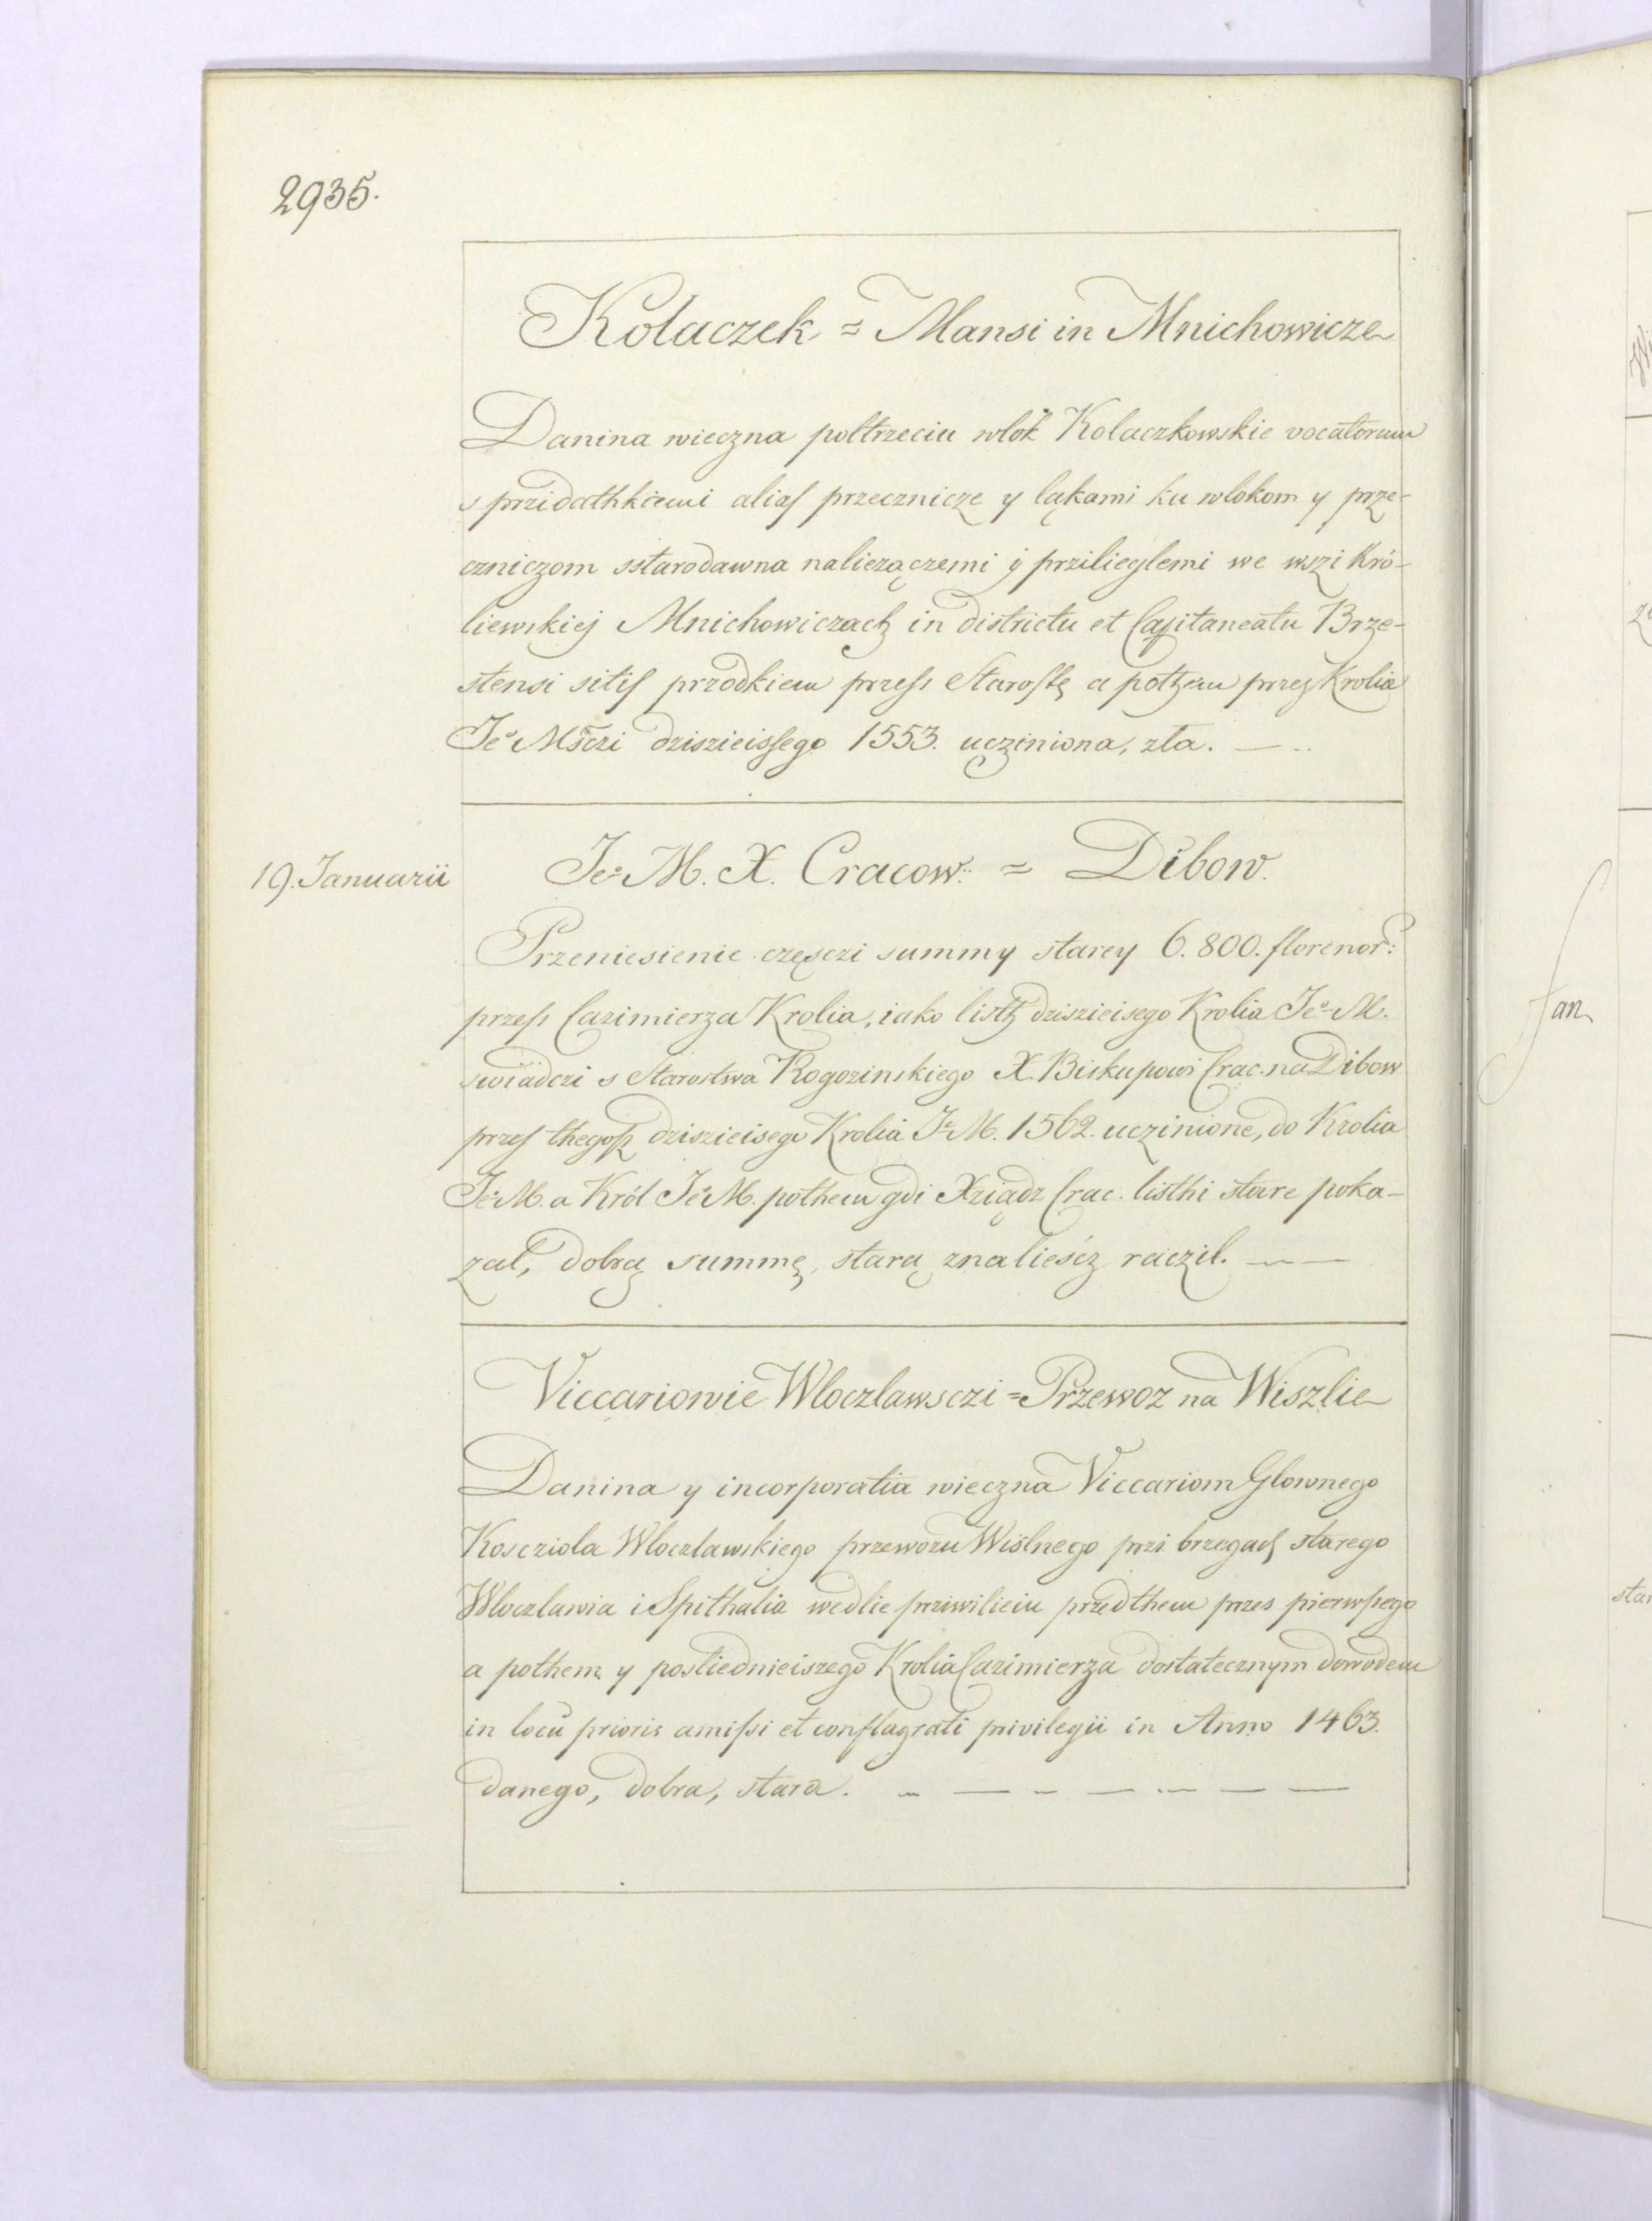 2935.
Kolaczek = Mansi in Mnichowicze
Danina wieczna poltrzeciu wlók Kolaczkowskie vocatorum
s przidathkami alias przecznicze y ląkami ku wlokom y prze-
czniczom sstarodawna należączemi y przilieglemi we wszi Kró-
liewskiej Mnichowiczach in districtu et Capitaneatu Brze-
stensi sitis przodkiem przess Starostę a potzem przez Krolia
Jeº Msczi dziszieissego 1553. uczyniona, zła. — ..
19. Januarii
Jeº M. X. Cracow: = Dibow.
Przeniesienie częsczi summy starey 6.800. florenor:
przess Cazimierza Krolia, iako listh dziszieisego Krolia Jeº M.
swiadczi s Starostwa Rogozinskiego X. Biskupowi Crac. na Dibow
przes thegosz dziszieisego Krolia Jº M. 1562. uczinione, do Krolia
Jeº M. a Król Jeº M. pothem gdi Xziądz Crac. listhi stare poka-
zał, dobrą summę, starą znalieścz raczil. ~ —
Viccariowie Wloczlawsczi = Przewoz na Wiszlie
Danina y incorporatia wieczna Viccariom Glownego
Kosciola Wloczlawskiego przewozu Wislnego przi brzegach starego
Wloczlawia i Spithalia wedlie przwilieiu przedthem przes pierwszego
a pothem y posliednieiszego Krolia Cazimierza dostatecznym dowodem
in locū prioris amissi et conflagrati privilegii in Anno 1463.
danego, dobra, stara. ~ — ~ — ~ — —
Jan